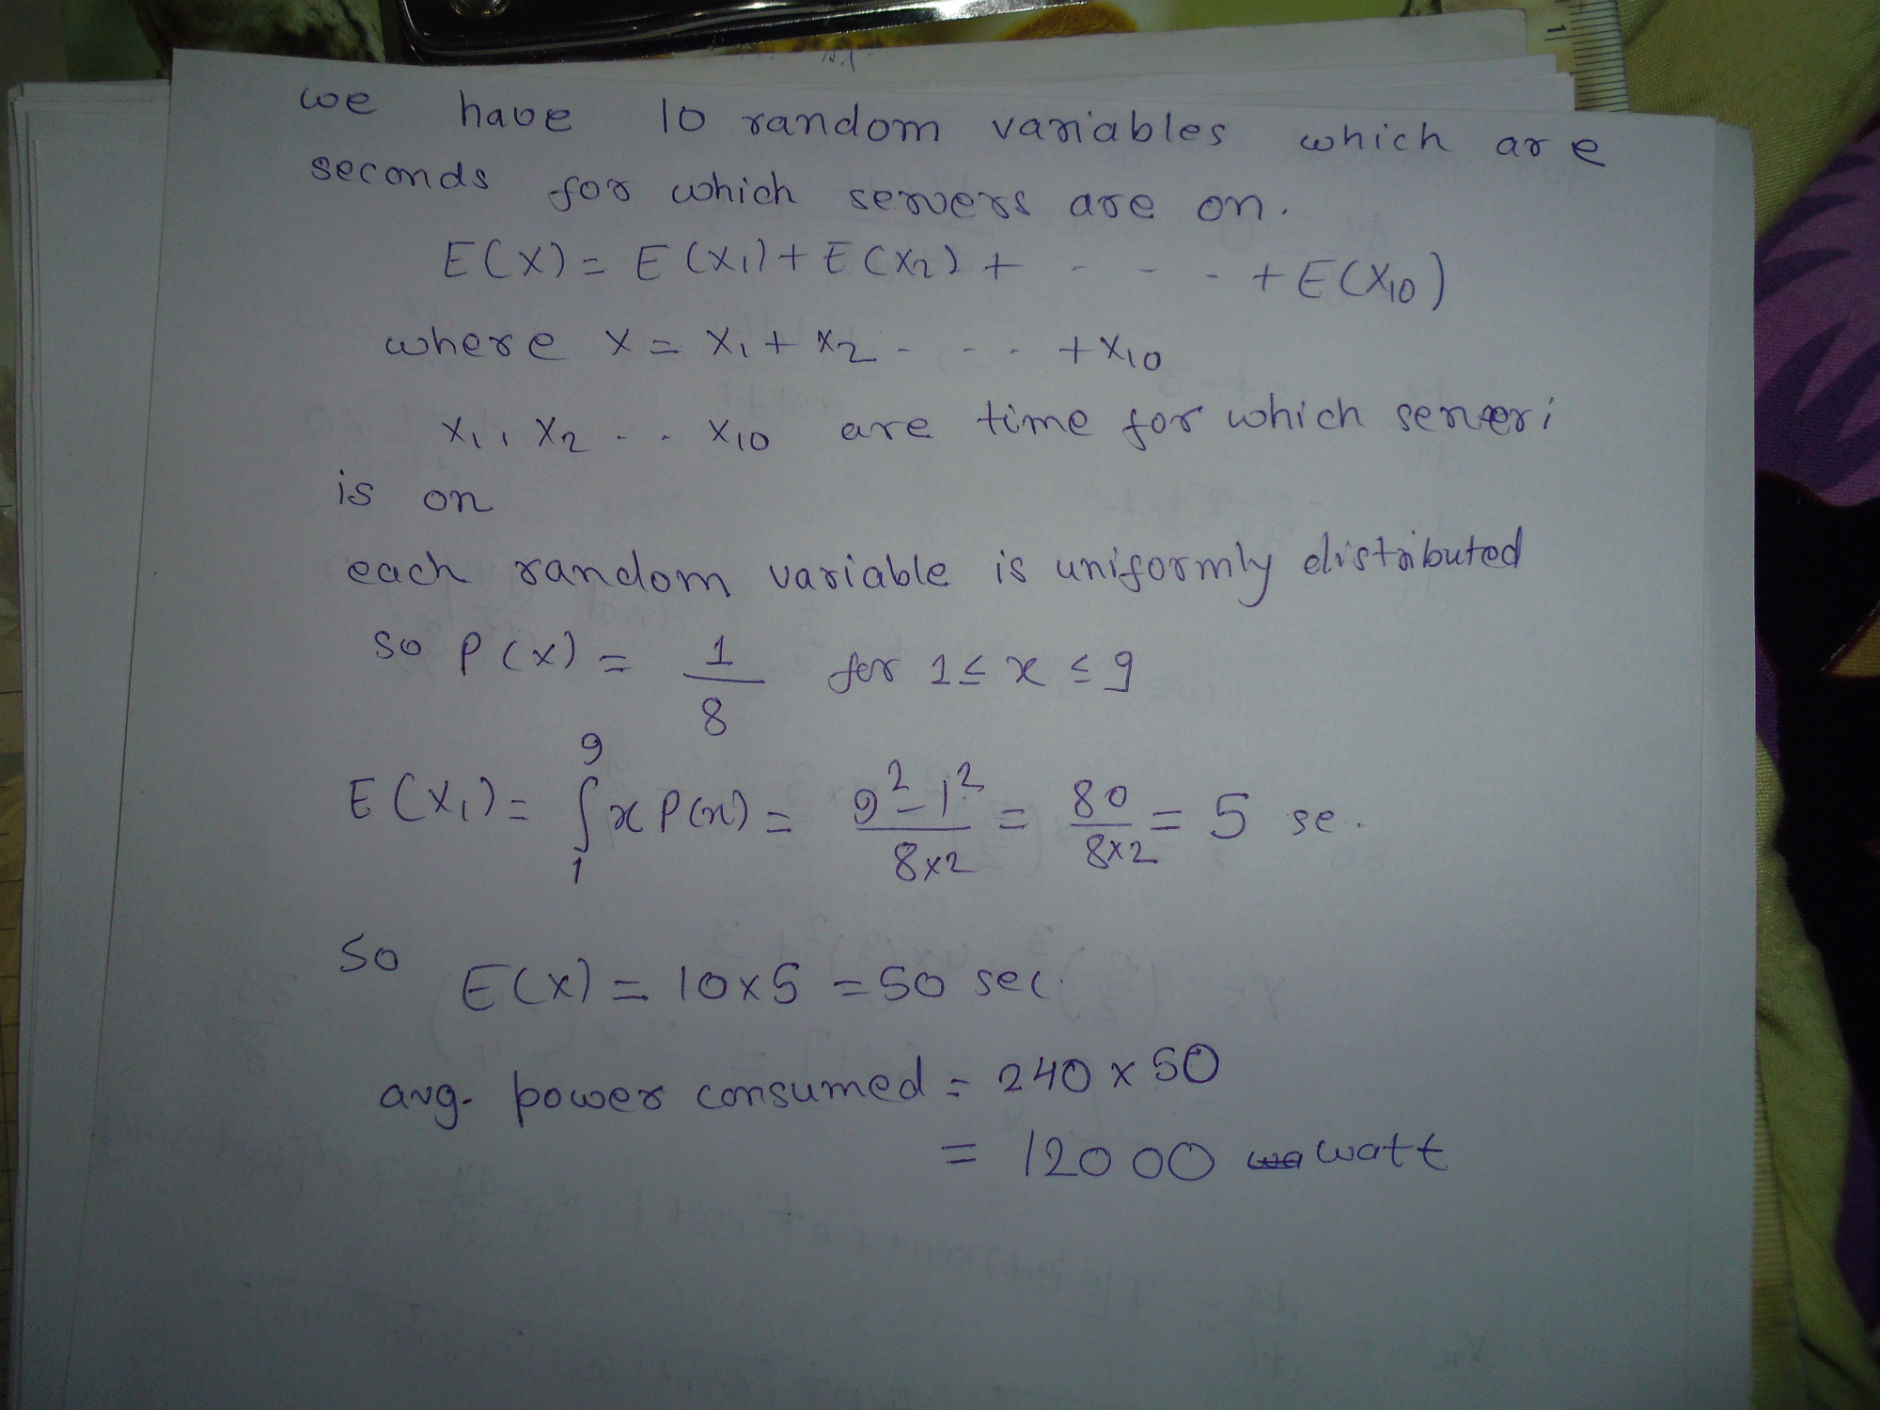 we have 10 random variables which are
seconds for which servers are on.
E(X) = E(X1) + E(X2) + - - - + E(X10)
where X = X1 + X2 - - - - + X10
X1, X2 - - X10 are time for which server i
is on
each random variable is uniformly distributed
so P(x) = 1/8 for 1 ≤ x ≤ 9
E(X1) = ∫₁⁹ x P(x) = (9² - 1²)/(8x2) = 80/(8x2) = 5 se.
So E(X) = 10x5 = 50 sec.
avg. power consumed = 240 x 50
= 12000 watt